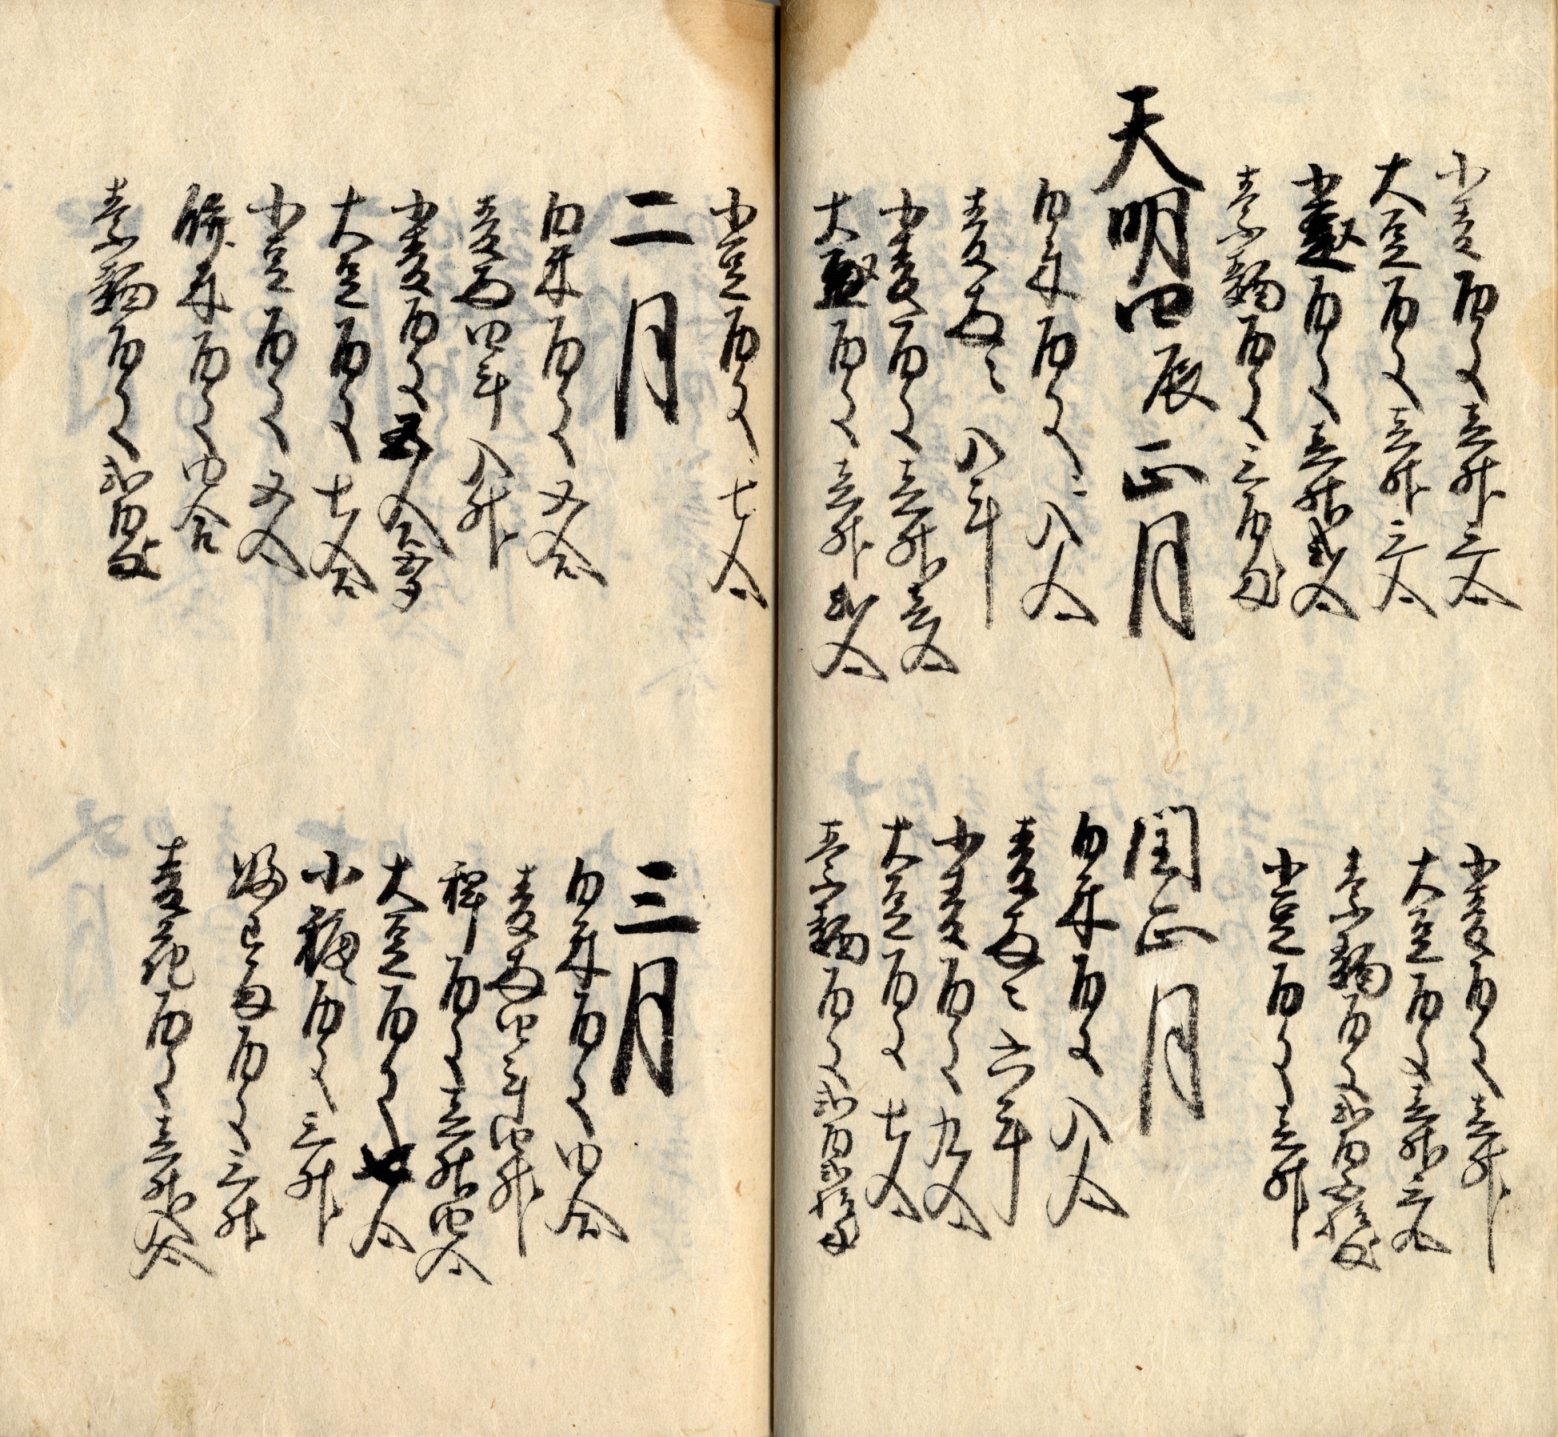 小麦百文壱升三合
大豆百文壱升三合
小豆百文壱升弐合
素麺百文三百目
天明四辰正月
白米百文八合
麦両ニ八斗
小麦百文壱升壱合
大豆百文壱升弐合
小麦百文壱升
大豆百文壱升三合
素麺百文弐百五拾目
小豆百文壱升
閏正月
白米百文八合
麦両ニ六斗
小麦百文九合
大豆百文七合
素麺百文弐百弐拾目
小豆百文七合
二月
白米百文五合
麦両四斗八升
小麦百文五合
大豆百文七合
小豆百文五合
餅米百文四合
素麺百文弐百目
三月
白米百文四合
麦両四斗四升
稗百文壱升四合
大豆百文七合
小糠百文三升
百文三升
百文壱升